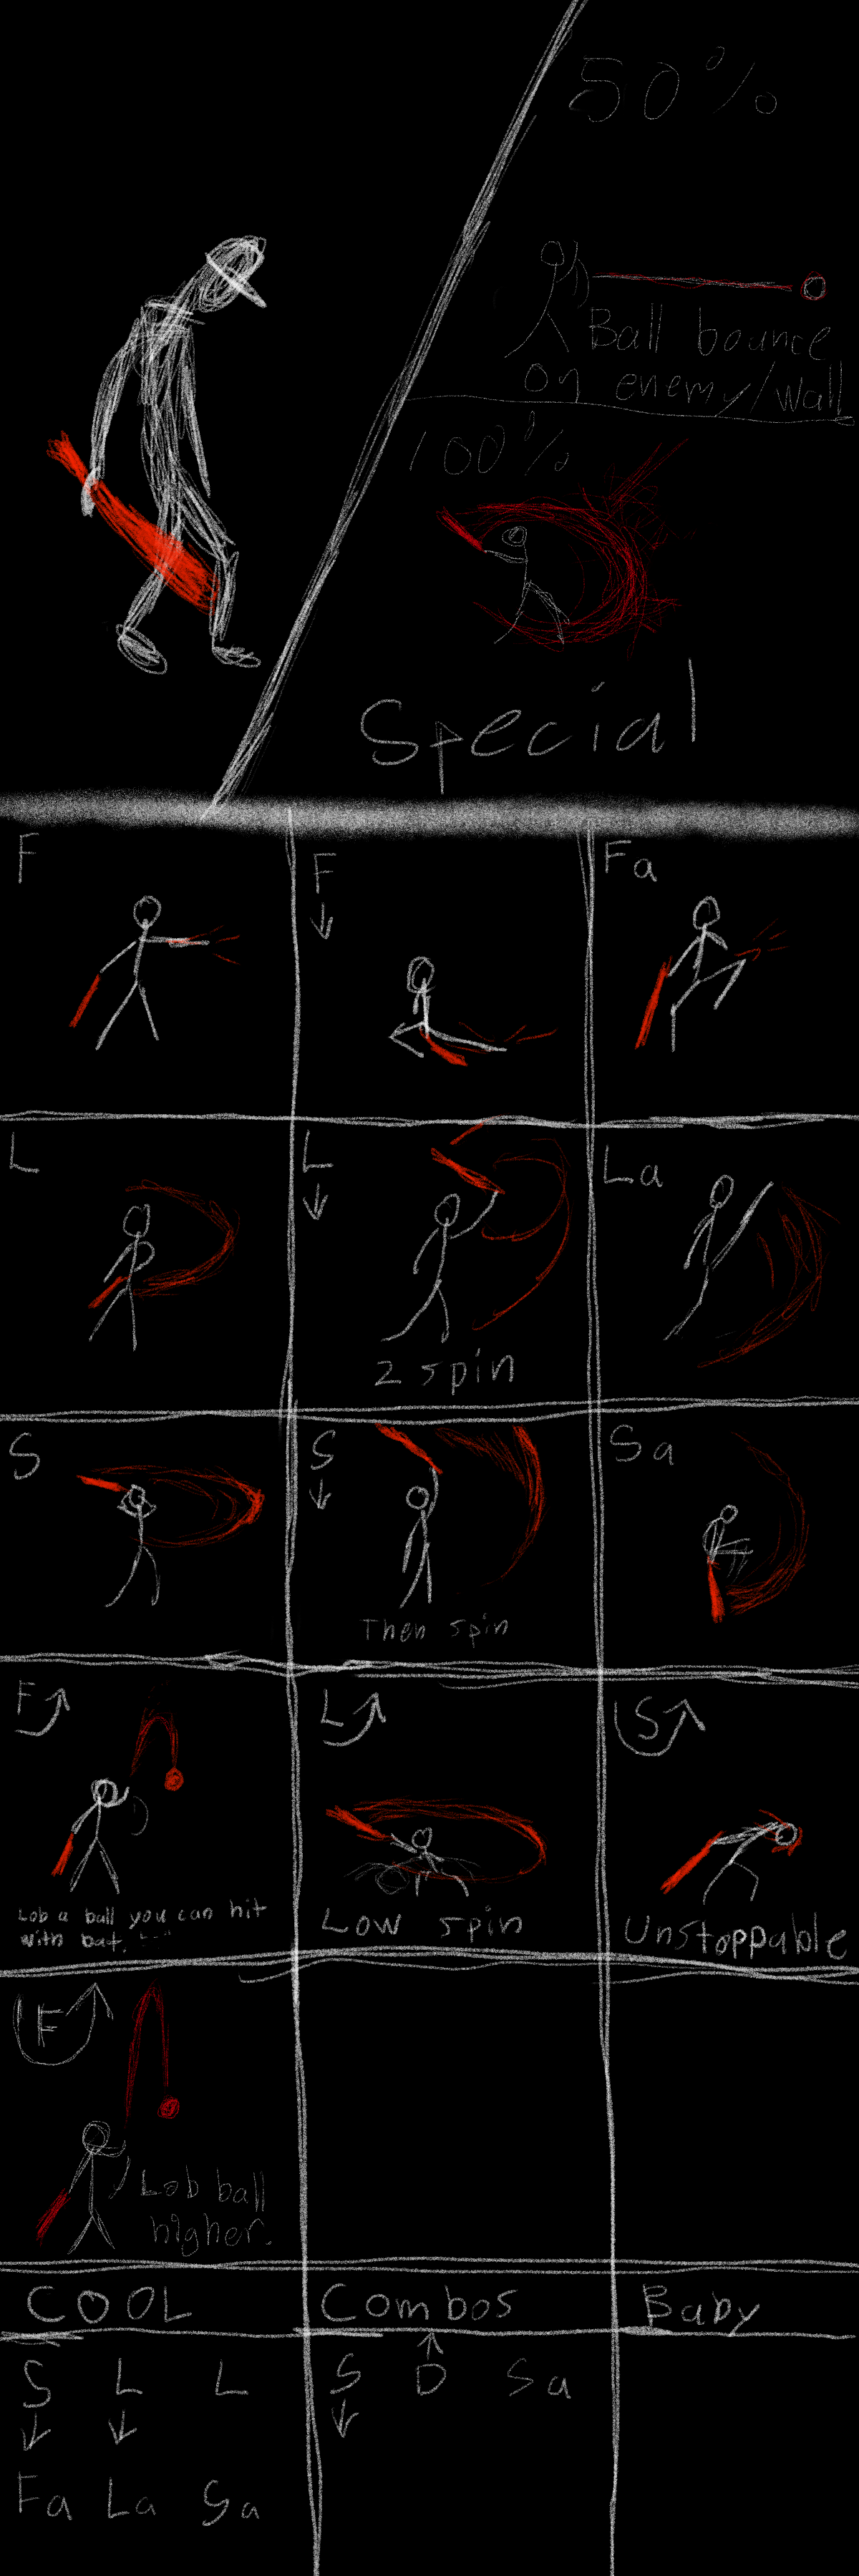 50%
Ball bounce
on enemy/wall
100%
Special
F
F ↓
Fa
L
L ↓
2 spin
La
S
S ↓
Then spin
Sa
F
Lob a ball you can hit
with bat.
L
Low spin
S
Unstoppable
F
Lob ball
higher.
COOL Combos Baby
S L L
↓ ↓
Fa La Sa
↑
S D Sa
↓